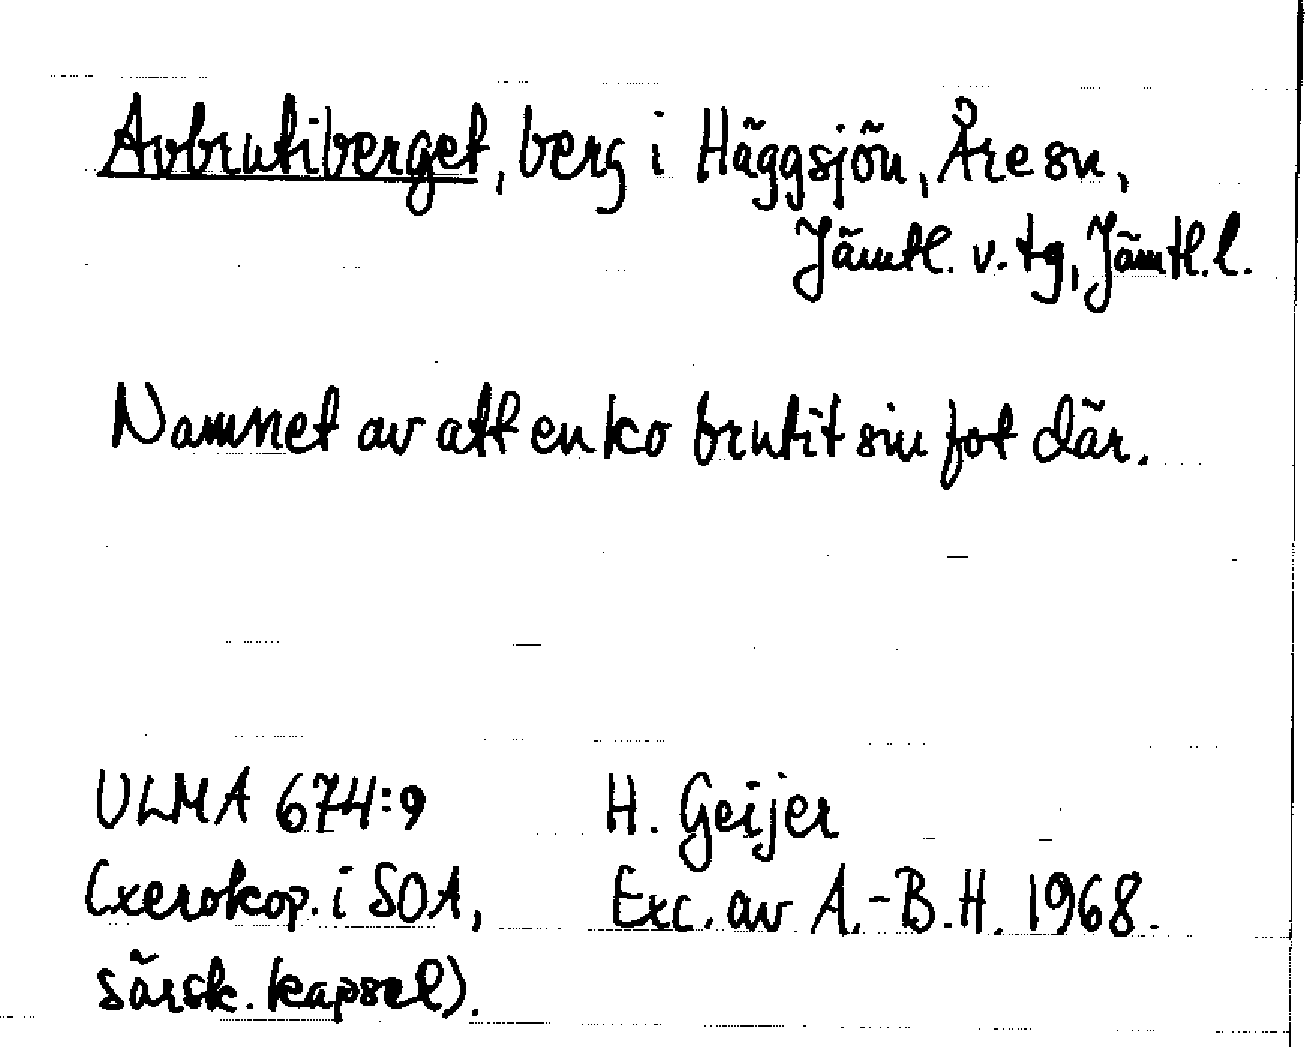 Avbrutiberget, berg i Häggsjön, Åre sn,
Jämtl. v. tg, Jämtl. l.
Namnet av att en ko brutit sin fot där.
ULMA 674:9 H. Geijer
(xerokop. i SOA, Exc. av A.-B. H. 1968.
särsk. kapsel).